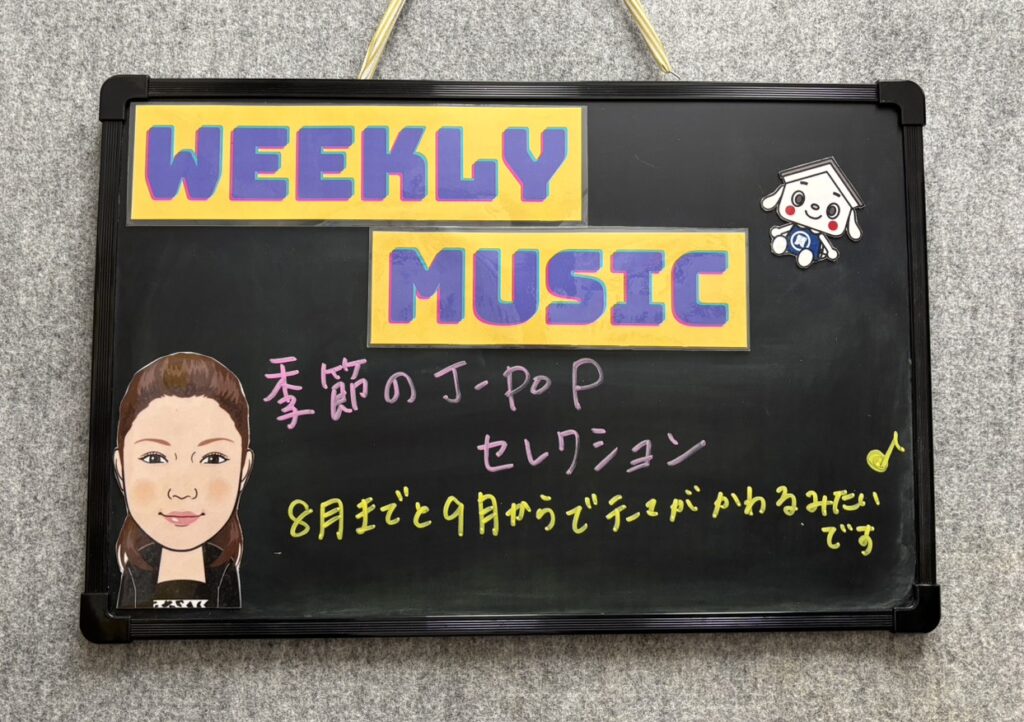 WEEKLY
MUSIC
季節のJ-POP
セレクション
8月までと9月からでテーマがかわるみたい
です